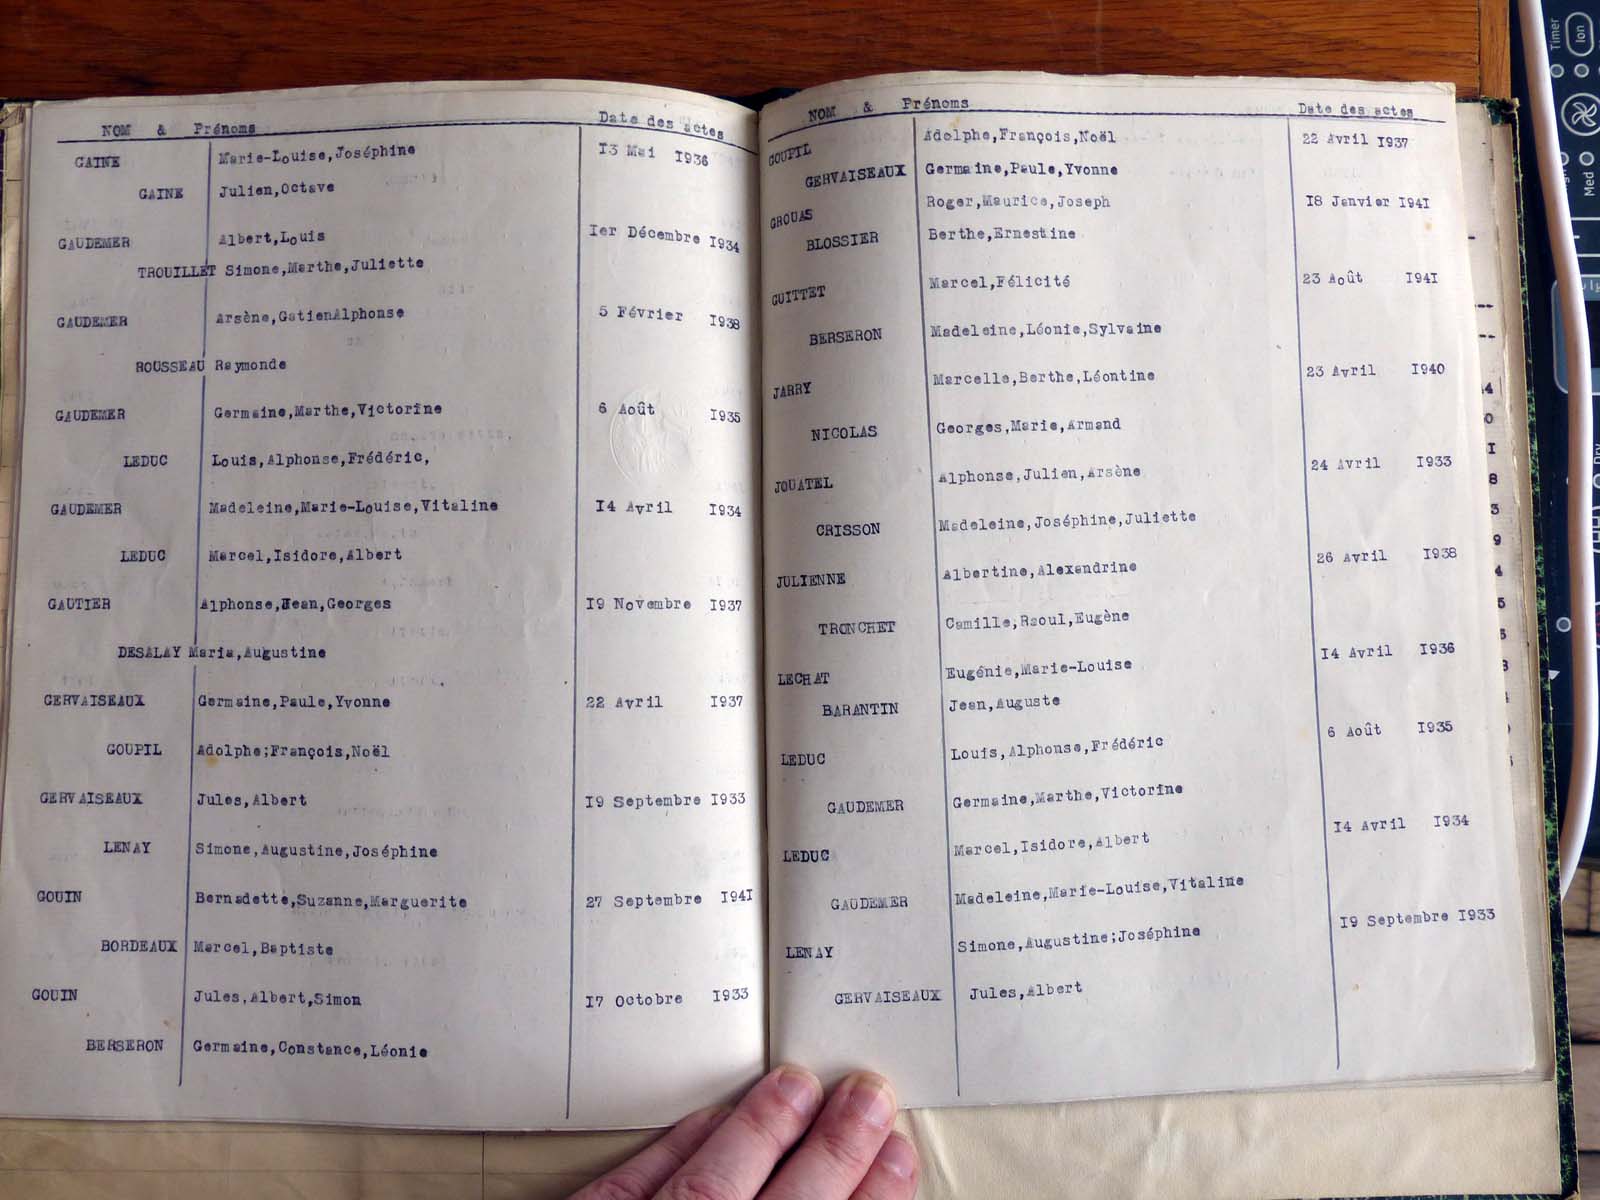 NOM & Prénoms Date des actes
GAINE Marie-Louise,Joséphine 13 Mai 1936
GAINE Julien,Octave
GAUDEMER Albert,Louis 1er Décembre 1934
TROUILLET Simone,Marthe,Juliette
GAUDEMER Arsène,GatienAlphonse 5 Février 1938
ROUSSEAU Raymonde
GAUDEMER Germaine,Marthe,Victorine 6 Août 1935
LEDUC Louis,Alphonse,Frédéric,
GAUDEMER Madeleine,Marie-Louise,Vitaline 14 Avril 1934
LEDUC Marcel,Isidore,Albert
GAUTIER Alphonse,Jean,Georges 19 Novembre 1937
DESALAY Maria,Augustine
GERVAISEAUX Germaine,Paule,Yvonne 22 Avril 1937
GOUPIL Adolphe;François,Noël
GERVAISEAUX Jules,Albert 19 Septembre 1933
LENAY Simone,Augustine,Joséphine
GOUIN Bernadette,Suzanne,Marguerite 27 Septembre 1941
BORDEAUX Marcel,Baptiste
GOUIN Jules,Albert,Simon 17 Octobre 1933
BERSERON Germaine,Constance,Léonie
NOM & Prénoms Date des actes
GOUPIL Adolphe,François,Noël 22 Avril 1937
GERVAISEAUX Germaine,Paule,Yvonne
GROUAS Roger,Maurice,Joseph 18 Janvier 1941
BLOSSIER Berthe,Ernestine
GUITTET Marcel,Félicité 23 Août 1941
BERSERON Madeleine,Léonie,Sylvaine
JARRY Marcelle,Berthe,Léontine 23 Avril 1940
NICOLAS Georges,Marie,Armand
JOUATEL Alphonse,Julien,Arsène 24 Avril 1933
CRISSON Madeleine,Joséphine,Juliette
JULIENNE Albertine,Alexandrine 26 Avril 1938
TRONCHET Camille,Raoul,Eugène
LECHAT Eugénie,Marie-Louise 14 Avril 1936
BARANTIN Jean,Auguste
LEDUC Louis,Alphonse,Frédéric 6 Août 1935
GAUDEMER Germaine,Marthe,Victorine
LEDUC Marcel,Isidore,Albert 14 Avril 1934
GAUDEMER Madeleine,Marie-Louise,Vitaline
LENAY Simone,Augustine;Joséphine 19 Septembre 1933
GERVAISEAUX Jules,Albert
Timer
Ion
Med